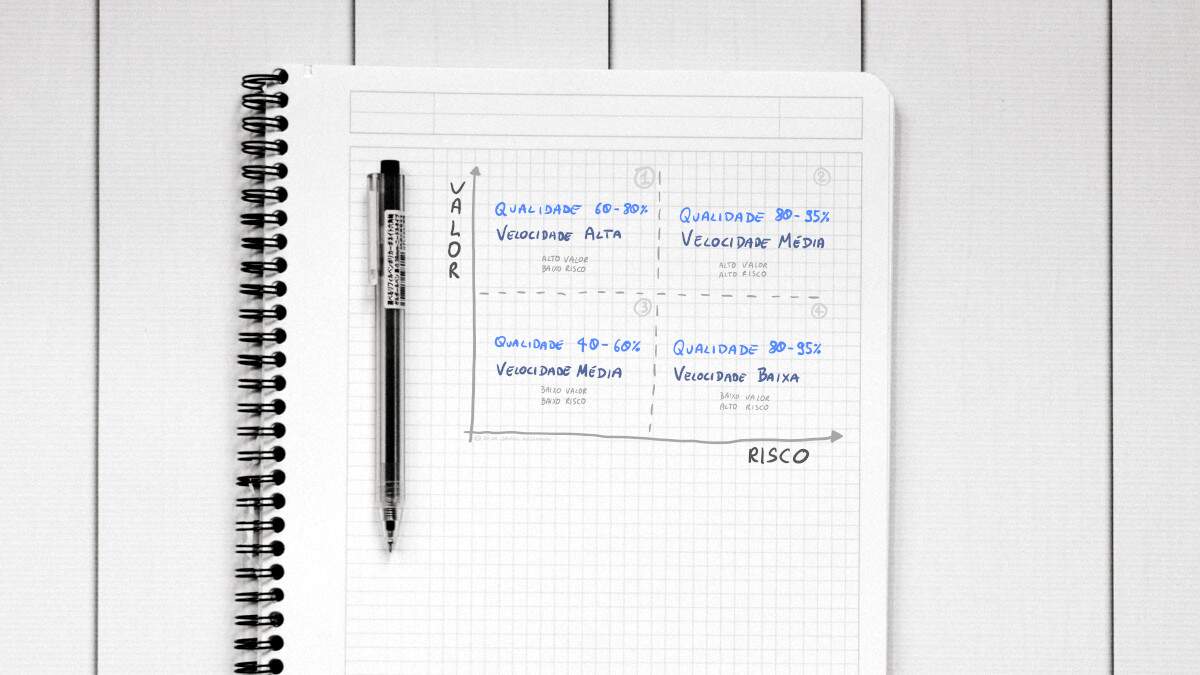 VALOR
①
QUALIDADE 60-80%
VELOCIDADE ALTA
ALTO VALOR
BAIXO RISCO
②
QUALIDADE 80-95%
VELOCIDADE MÉDIA
ALTO VALOR
ALTO RISCO
③
QUALIDADE 40-60%
VELOCIDADE MÉDIA
BAIXO VALOR
BAIXO RISCO
④
QUALIDADE 80-95%
VELOCIDADE BAIXA
BAIXO VALOR
ALTO RISCO
RISCO